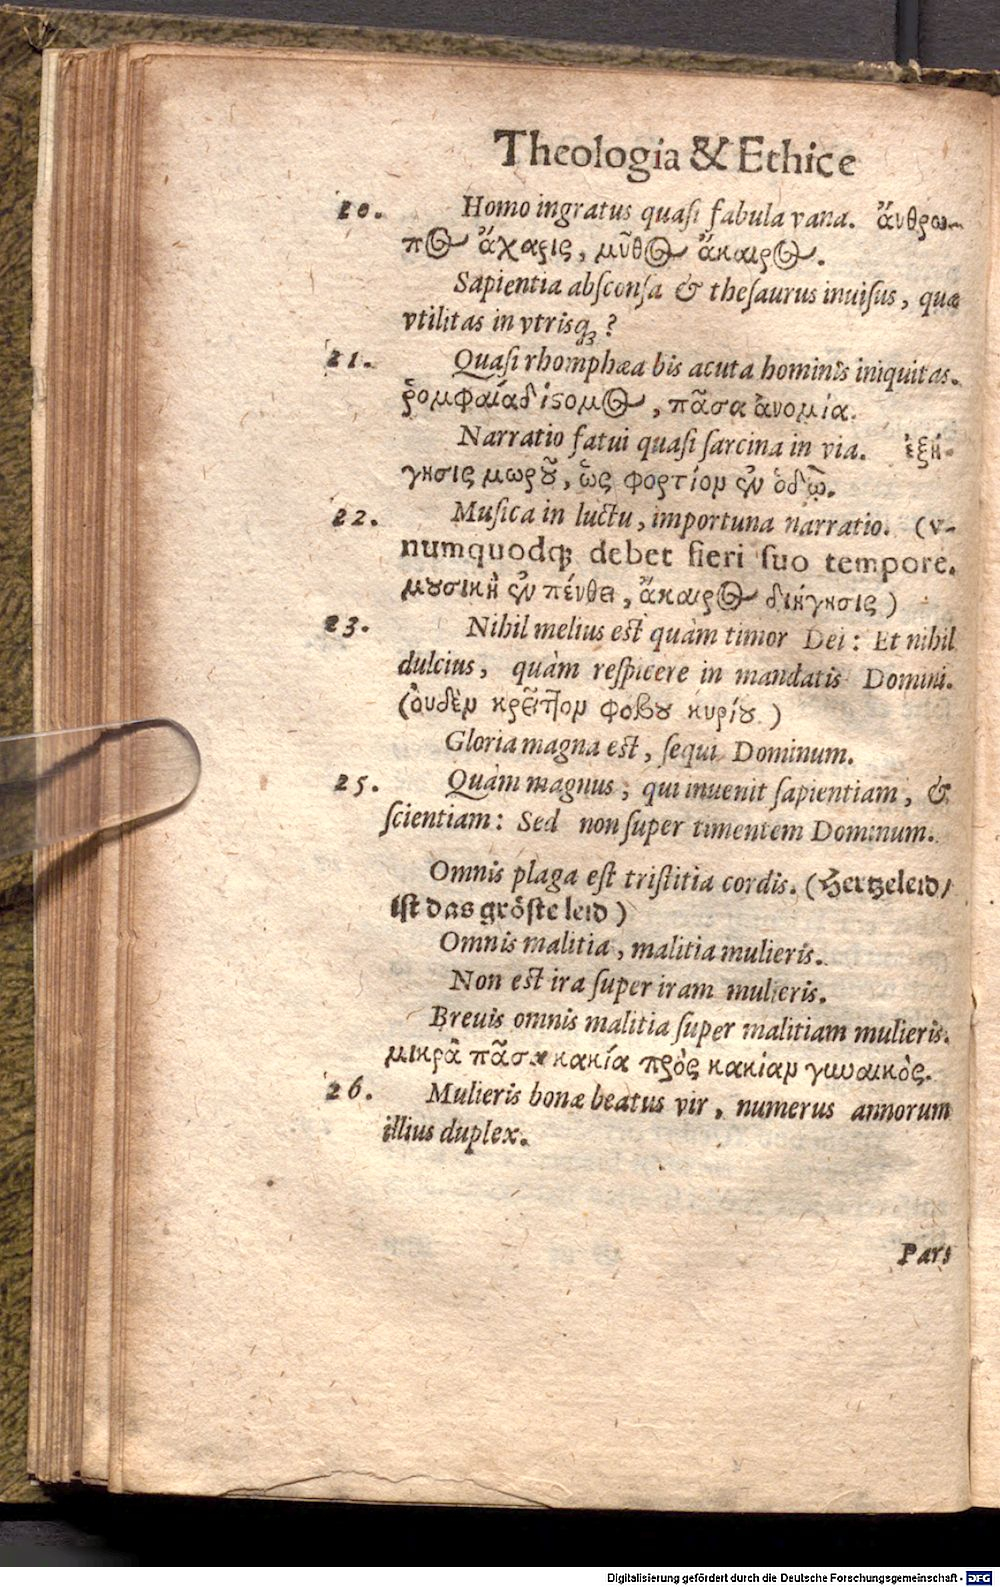 Theologia & Ethice
20. Homo ingratus quasi fabula vana. ἄνθρω-
πος ἄχαρις, μῦθος ἄκαιρος.
Sapientia absconsa & thesaurus inuisus, quæ
vtilitas in vtrisq; ?
21. Quasi rhomphæa bis acuta hominis iniquitas.
ῥομφαία δίστομος, πᾶσα ἀνομία.
Narratio fatui quasi sarcina in via. ἐξή-
γησις μωροῦ, ὡς φορτίον ἐν ὁδῷ.
22. Musica in luctu, importuna narratio. (v-
numquodq; debet fieri suo tempore.
μουσικὴ ἐν πένθει, ἄκαιρος διήγησις)
23. Nihil melius est quàm timor Dei: Et nihil
dulcius, quàm respicere in mandatis Domini.
(ὀυδὲν κρεῖττον φοβου κυρίου.)
Gloria magna est, sequi Dominum.
25. Quàm magnus, qui inuenit sapientiam, &
scientiam: Sed non super timentem Dominum.
Omnis plaga est tristitia cordis. (Hertzeleid/
ist das gröste leid)
Omnis malitia, malitia mulieris.
Non est ira super iram mulieris.
Breuis omnis malitia super malitiam mulieris.
μικρὰ πᾶσα κακία πρὸς κακίαν γυναικὸς.
26. Mulieris bonæ beatus vir, numerus annorum
illius duplex.
Pars
Digitalisierung gefördert durch die Deutsche Forschungsgemeinschaft - DFG